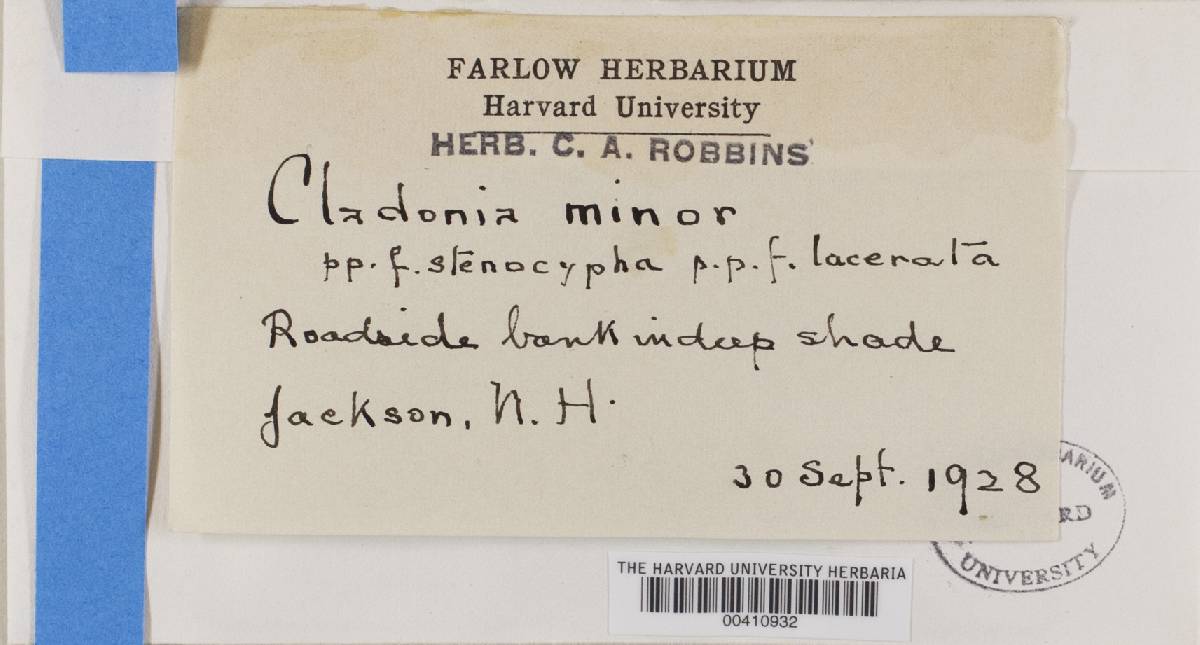 FARLOW HERBARIUM
Harvard University
HERB. C. A. ROBBINS
Cladonia minor
pp. f. stenocypha p.p. f. lacerata
Roadside bank in deep shade
Jackson, N. H.
30 Sept. 1928
ARIUM
RD
UNIVERSITY
THE HARVARD UNIVERSITY HERBARIA
00410932